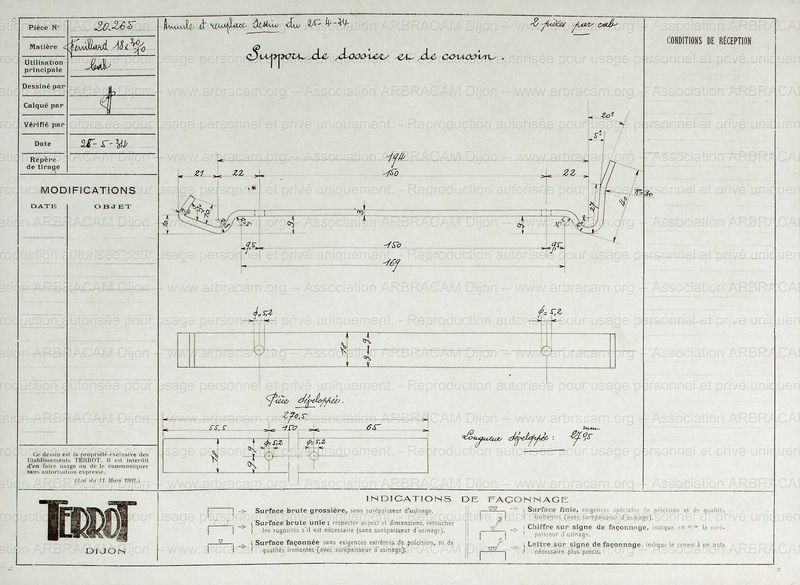 Pièce N° 20.265
Matière Feuillard 18 x 30/10
Utilisation principale Cab
Dessiné par
Calqué par
Vérifié par
Date 25-5-34
Repère de tirage
MODIFICATIONS
DATE OBJET
Annule et remplace Dessin du 25-4-34
2 pièces par cab
Support de dossier et de coussin.
CONDITIONS DE RÉCEPTION
20°
5°
194
21 22 150 22
3
9 9
9,5 150 9,5
169
ϕ=5,2 ϕ=5,2
18 9 9
Pièce développée.
270,5
55,5 150 65
ϕ5,2 ϕ5,2
18 9 9
Longueur développée:
Ce dessin est la propriété exclusive des
Etablissements TERROT. Il est interdit
d'en faire usage ou de le communiquer
sans autorisation expresse.
(Loi du 11 Mars 1902.)
TERROT
DIJON
INDICATIONS DE FAÇONNAGE
Surface brute grossière, sans surépaisseur d'usinage.
Surface brute unie: respecter aspect et dimensions, retoucher
les rugosités s'il est nécessaire (sans surépaisseur d'usinage).
Surface façonnée sans exigences extrêmes de précision, ni de
qualités frottantes (avec surépaisseur d'usinage).
Surface finie, exigences spéciales de précision et de qualités
frottantes (avec surépaisseur d'usinage).
Chiffre sur signe de façonnage, indique en m/m la surépaisseur d'usinage.
Lettre sur signe de façonnage, indique le renvoi à une note
nécessaire plus précis.
www.arbracam.org – Association ARBRACAM Dijon – www.arbracam.org – Association ARBRACAM Dijon
Reproduction autorisée pour usage personnel et privé uniquement.